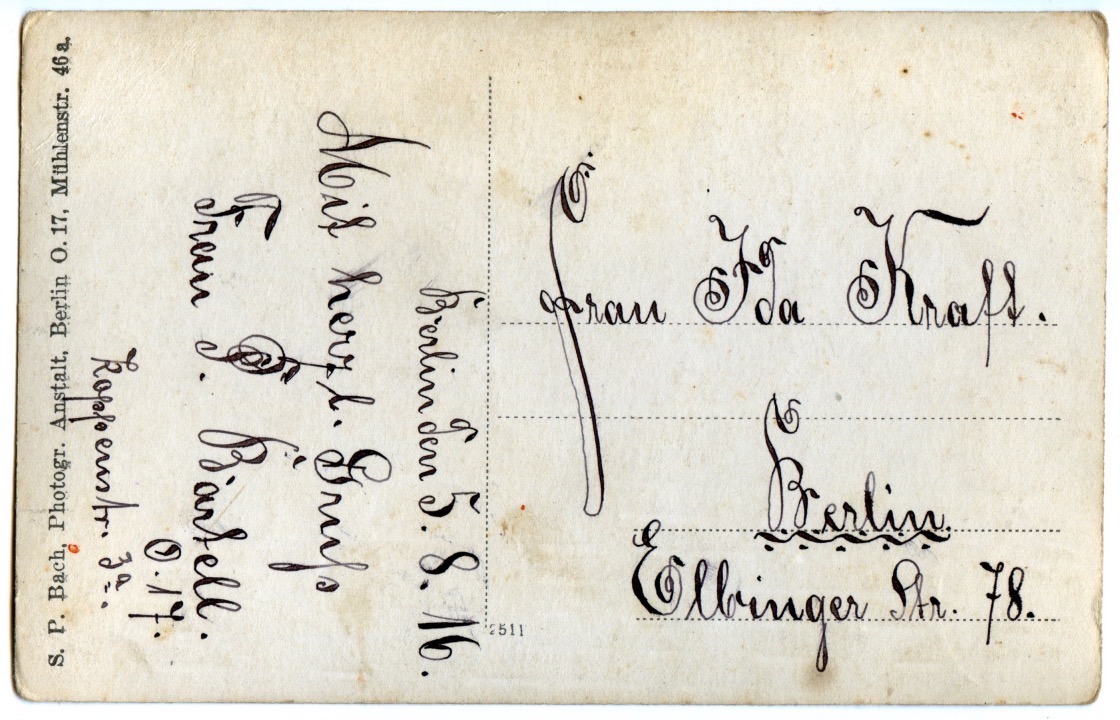 Berlin den 5. 8. 16.
Mit herzl. Gruß
Frau J. Bartell.
O. 17.
Koppenstr. 3a.
S. P. Bach, Photogr. Anstalt, Berlin O. 17, Mühlenstr. 46a.
2511
Frau Ida Kraft.
Berlin
Elbinger Str. 78.